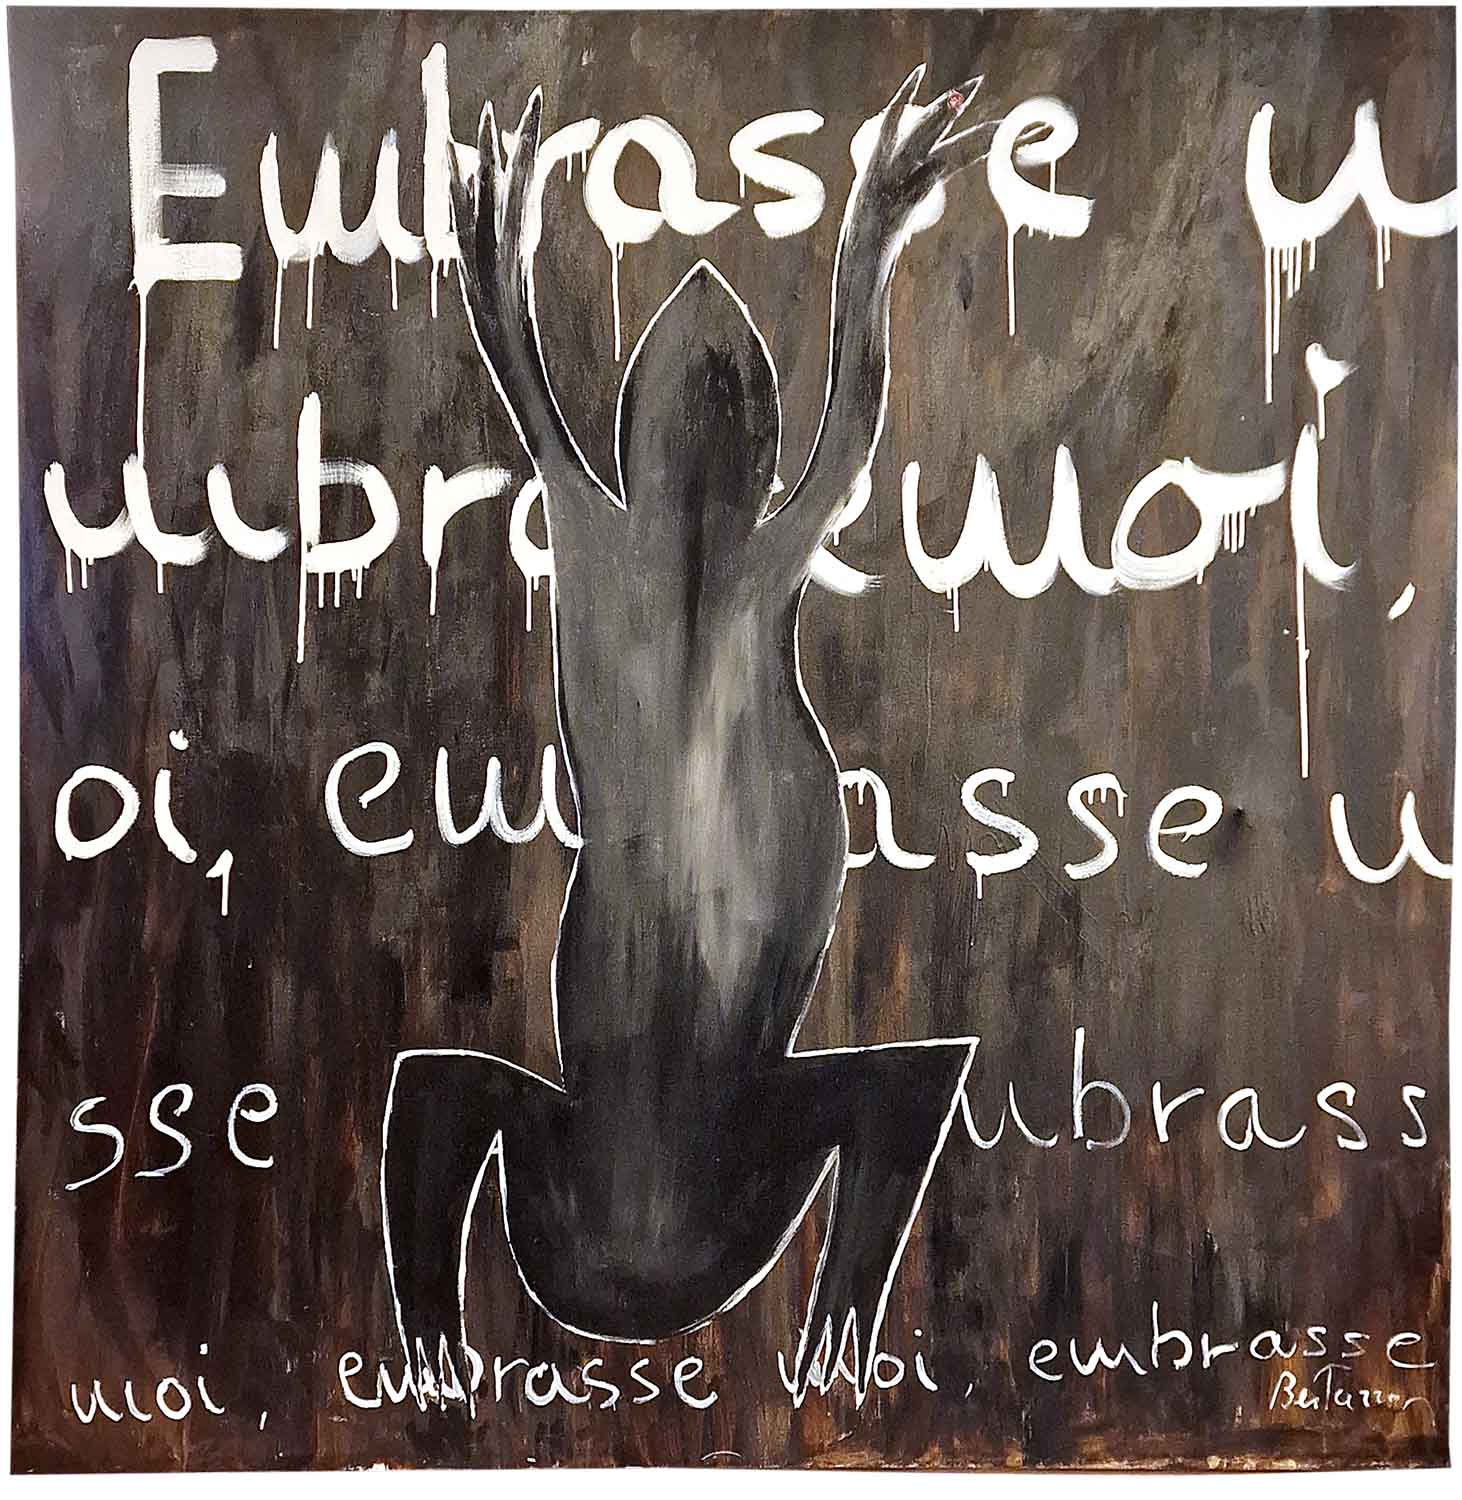 Embrasse m
mbra emoi,
oi, em asse m
sse mbrass
moi, embrasse moi, embrasse
Bertazzon